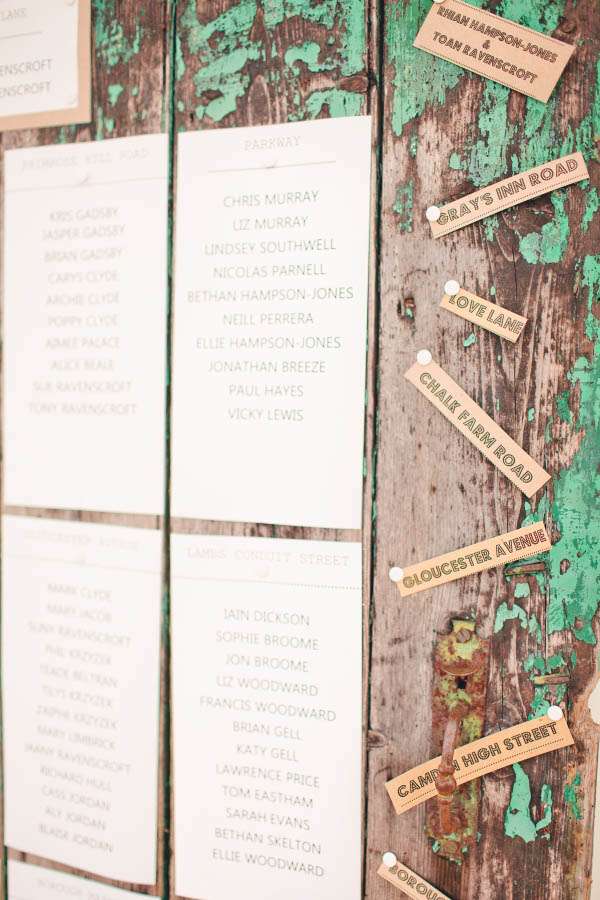 LANE
RAVENSCROFT
RAVENSCROFT
PRIMROSE HILL ROAD
KRIS GADSBY
JASPER GADSBY
BRIAN GADSBY
CARYS CLYDE
ARCHIE CLYDE
POPPY CLYDE
AIMEE PALACE
ALICE BEALE
SUE RAVENSCROFT
TONY RAVENSCROFT
PARKWAY
CHRIS MURRAY
LIZ MURRAY
LINDSEY SOUTHWELL
NICOLAS PARNELL
BETHAN HAMPSON-JONES
NEILL PERRERA
ELLIE HAMPSON-JONES
JONATHAN BREEZE
PAUL HAYES
VICKY LEWIS
GLOUCESTER AVENUE
MARK CLYDE
MARY JACOB
RAVENSCROFT
PHIL KRZYZEK
BELTRAN
KRZYZEK
KRZYZEK
MARY LIMBRICK
RAVENSCROFT
RICHARD HULL
CASS JORDAN
ALY JORDAN
BLAISE JORDAN
LAMBS CONDUIT STREET
IAIN DICKSON
SOPHIE BROOME
JON BROOME
LIZ WOODWARD
FRANCIS WOODWARD
BRIAN GELL
KATY GELL
LAWRENCE PRICE
TOM EASTHAM
SARAH EVANS
BETHAN SKELTON
ELLIE WOODWARD
BOROUGH
RHIAN HAMPSON-JONES
&
TOAN RAVENSCROFT
GRAY'S INN ROAD
LOVE LANE
CHALK FARM ROAD
GLOUCESTER AVENUE
CAMDEN HIGH STREET
BOROUGH